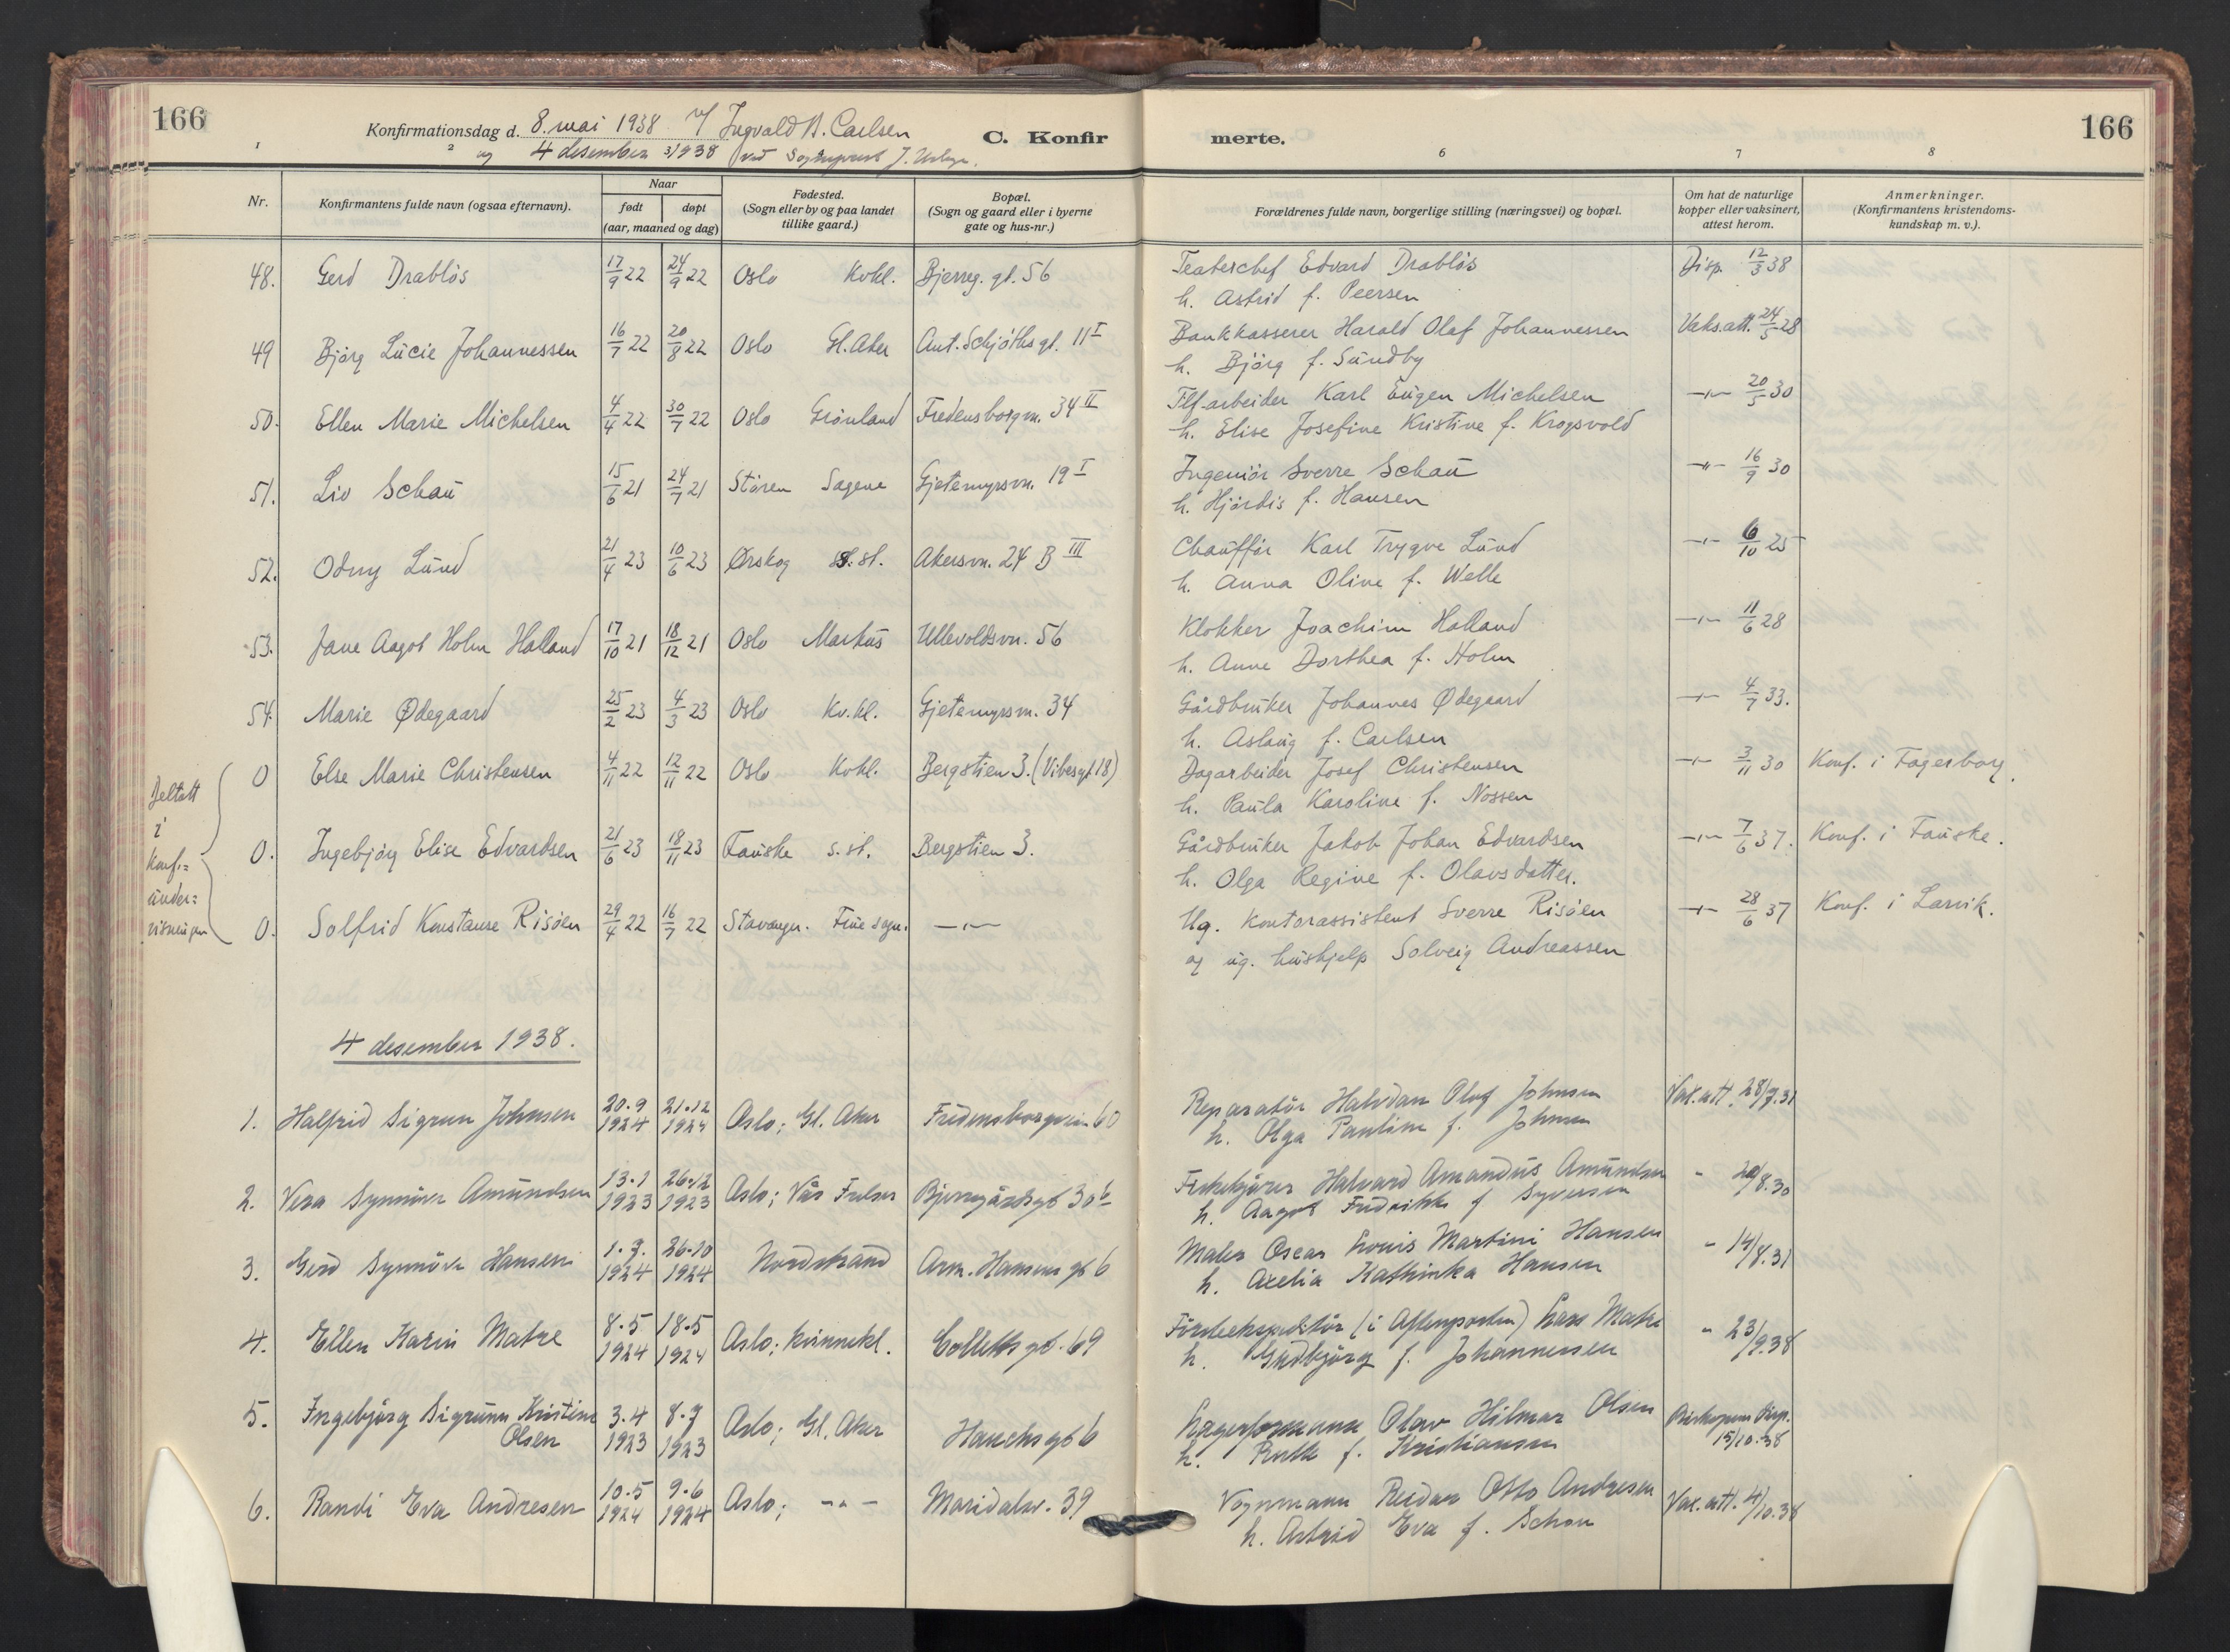 166
Konfirmationsdag d. 8. mai 1938 v/ Ingvald B. Carlsen
og 4 desember 1938 ved Sogneprest J.
C. Konfirmerte.
166
1 2 3 6 7 8
Nr.
Konfirmantens fulde navn (ogsaa efternavn).
Naar
født døpt
(aar, maaned og dag)
Fødested.
(Sogn eller by og paa landet
tillike gaard.)
Bopæl.
(Sogn og gaard eller i byerne
gate og hus-nr.)
Forældrenes fulde navn, borgerlige stilling (næringsvei) og bopæl.
Om hat de naturlige
kopper eller vaksinert,
attest herom.
Anmerkninger.
(Konfirmantens kristendoms-
kundskap m. v.).
48. Gerd Drabløs 17/9 22 24/9 22 Oslo Kvkl. Bjerreg. gt. 56 Teaterchef Edvard Drabløs Disp. 12/3 38
h. Astrid f. Peersen
49 Bjørg Lucie Johannessen 16/7 22 20/8 22 Oslo Gl. Aker Ant. Schjøthsgt. 11 I Bankkasserer Harald Olaf Johannessen Vaks.att. 24/5 28
h. Bjørg f. Sundby
50. Ellen Marie Michelsen 4/4 22 30/7 22 Oslo Grønland Fredensborgvn. 34 II Tlf.arbeider Karl Eugen Michelsen -"- 20/5 30
h. Elise Josefine Kristine f. Krogsvold
51. Liv Schau 15/6 21 24/7 21 Støren Sagene Gjetemyrsvn. 19 I Ingeniør Sverre Schau -"- 16/9 30
h. Hjørdis f. Hansen
52. Odny Lund 21/4 23 10/6 23 Ørskog s. st. Akersvn. 24 B III Chauffør Karl Trygve Lund -"- 6/10 25
h. Anna Oline f. Welle
53. Jane Aagot Holm Halland 17/10 21 18/12 21 Oslo Markus Ullevoldsvn. 56 Klokker Joachim Halland -"- 11/6 28
h. Anne Dorthea f. Holm
54. Marie Ødegaard 25/2 23 4/3 23 Oslo Kv.kl. Gjetemyrsvn. 34 Gårdbruker Johannes Ødegaard -"- 4/7 33.
h. Aslaug f. Carlsen
Deltatt
i
konf.=
under=
visningen
0 Else Marie Christensen 4/11 22 12/11 22 Oslo Kvkl. Bergstien 3. (Vibesgt 18) Dagarbeider Josef Christensen -"- 3/11 30 Konf. i Fagerborg.
h. Paula Karoline f. Nossen
0. Ingebjørg Elise Edvardsen 21/6 23 18/11 23 Fauske s. st. Bergstien 3. Gårdbruker Jakob Johan Edvardsen -"- 7/6 37. Konf. i Fauske.
h. Olga Regine f. Olavsdatter.
0. Solfrid Konstanse Risøen 29/4 22 16/7 22 Stavanger. Frue sogn. -"- Ug. kontorassistent Sverre Risøen -"- 28/6 37 Konf. i Larvik.
og ug. hushjelp Solveig Andreassen
4 desember 1938.
1. Halfrid Sigrun Johnsen 20.9 1924 21.12 1924 Oslo; Gl. Aker Fredensborgvein 60 Reparatør Halvdan Olaf Johnsen Vax.att. 28/7.31
h. Olga Pauline f. Johnsen
2. Vera Synnøve Amundsen 13.1 1923 26.12 1923 Oslo; Vår Frelser Bjerregårdsgt 30 b Halvard Amandus Amundsen " 20/8.30
h. Aagot Fredrikke f Syversen
3. Gerd Synnøve Hansen 1.7. 1924 26.10 1924 Nordstrand Arm. Hansens gt 6 Maler Oscar Louis Martini Hansen " 14/8.31
h. Axelia Kathinka Hansen
4. Ellen Karin Matre 8.5 1924 18.5 1924 Oslo; kvinnekl. Colletts gt. 69 (i Aftenposten) Lars Matre " 23/9.38
h. Gudbjørg f. Johannessen
5. Ingebjørg Sigrunn Kristine Olsen 3.4 1923 8.7 1923 Oslo; Gl. Aker Hauchs gt 6 Lagerformann Olav Hilmar Olsen Biskopens disp. 15/10.38
h. Ruth f. Kristiansen
6. Randi Eva Andresen 10.5 1924 9.6 1924 Oslo; -"- Maridalsv. 39 Vognmann Reidar Otto Andresen Vax. att. 4/10.38
h. Astrid Eva f. Schou